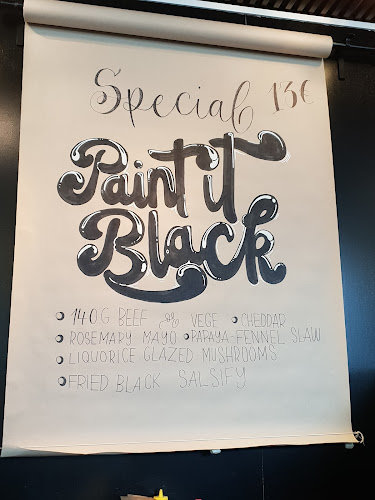 Special 13€
Paint it
Black
• 140G BEEF or VEGE • CHEDDAR
• ROSEMARY MAYO • PAPAYA-FENNEL SLAW
• LIQUORICE GLAZED MUSHROOMS
• FRIED BLACK SALSIFY